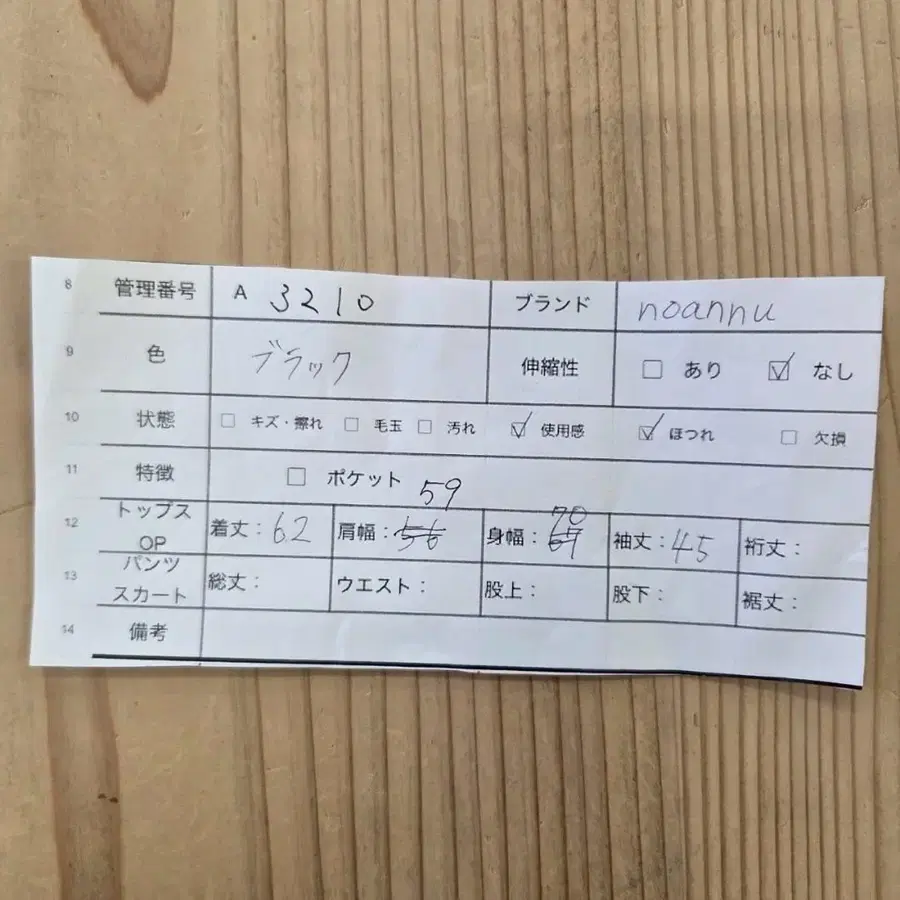 8 管理番号 A 3210 ブランド noannu
9 色 ブラック 伸縮性 □ あり ☑ なし
10 状態 □ キズ・擦れ □ 毛玉 □ 汚れ ☑ 使用感 ☑ ほつれ □ 欠損
11 特徴 □ ポケット
12 トップス OP 着丈：62 肩幅：56 59 身幅：69 70 袖丈：45 裄丈：
13 パンツ スカート 総丈： ウエスト： 股上： 股下： 裾丈：
14 備考